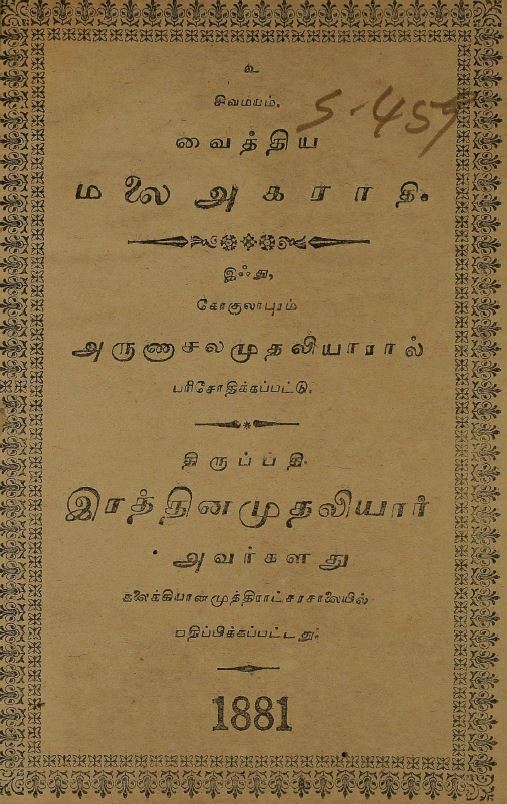 உ
சிவமயம்.
S-459
வைத்திய
மலை அகராதி.
இஃது,
கோகுலாபுரம்
அருணாசலமுதலியாரால்
பரிசோதிக்கப்பட்டு.
திருப்பதி.
இரத்தினமுதலியார்
அவர்களது
கலைக்கியானமுத்திராட்சரசாலையில்
பதிப்பிக்கப்பட்டது.
1881